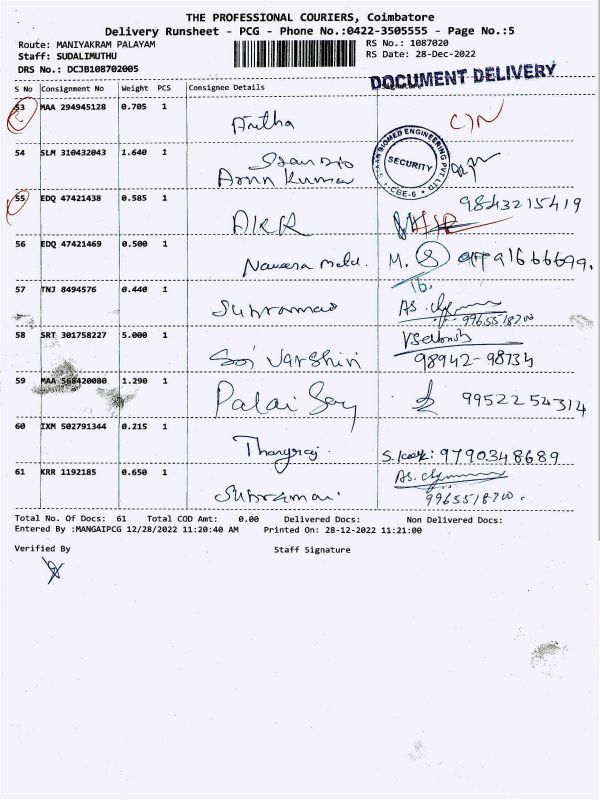 THE PROFESSIONAL COURIERS, Coimbatore
Delivery Runsheet - PCG - Phone No.:0422-3505555 - Page No.:5
Route: MANIYAKRAM PALAYAM
RS No.: 1087020
Staff: SUDALIMUTHU
RS Date: 28-Dec-2022
DRS No.: DCJB108702005
DOCUMENT DELIVERY
S No Consignment No Weight PCS Consignee Details
53 MAA 294945128 0.705 1
54 SLM 310432043 1.640 1
Arun Kumar
STAAN BIOMED ENGINEERING PVT LTD
SECURITY
CBE-6
55 EDQ 47421438 0.585 1 AKR 9843215419
56 EDQ 47421469 0.500 1
57 TNJ 8494576 0.440 1
9965518700
58 SRT 301758227 5.000 1 Sai Varshini
98942-98734
59 MAA 568420080 1.290 1 9952254314
60 IXM 502791344 0.215 1 Thangraj 9790348689
61 KRR 1192185 0.650 1
9965518700
Total No. Of Docs: 61 Total COD Amt: 0.00 Delivered Docs: Non Delivered Docs:
Entered By :MANGAIPCG 12/28/2022 11:20:40 AM Printed On: 28-12-2022 11:21:00
Verified By Staff Signature